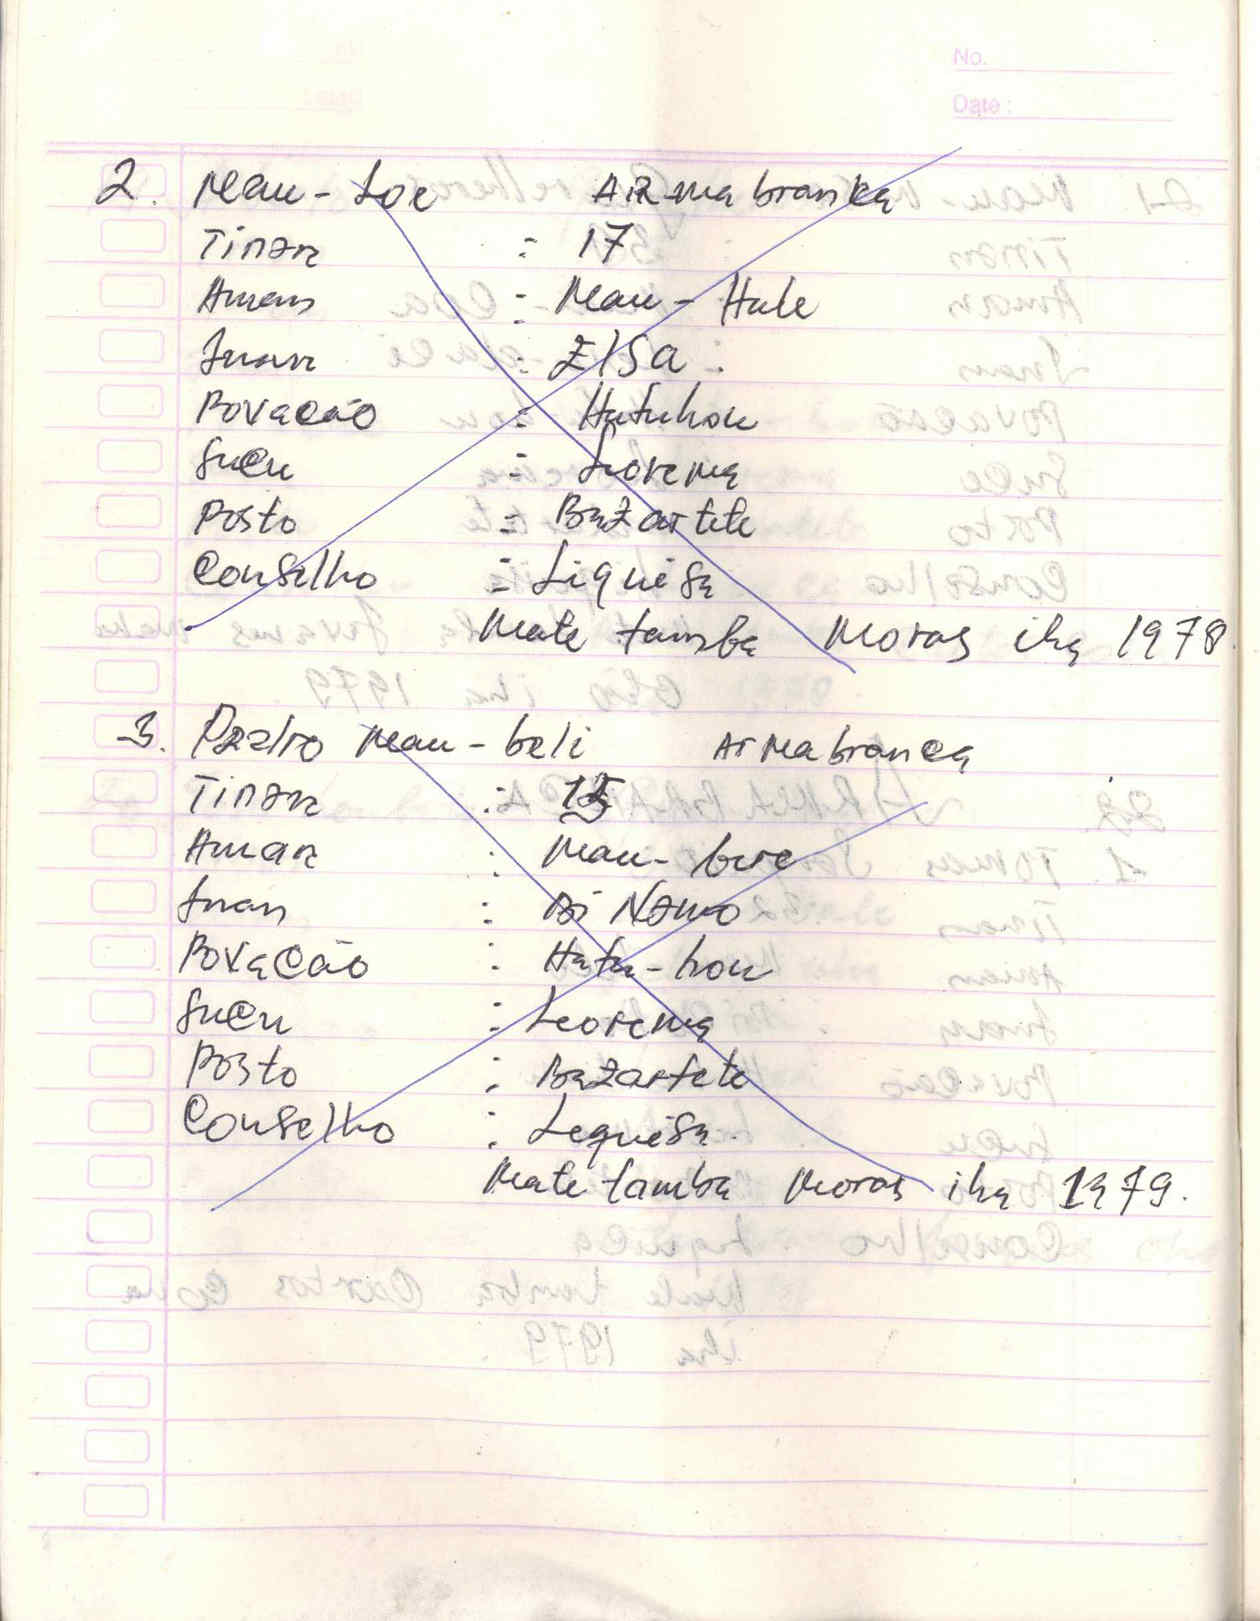 No.
Date :
2. Mau - Loe ARma branca
Tinan : 17
Aman : Mau - Hule
Inan : ElSa .
Povacão : Hatuhou
Sucu : Leorema
Posto : Bazartete
Conselho : Liquisa
Mate tamba Moras iha 1978
3. Pedro Mau - beli Armabranca
Tinan : 15
Aman : Mau - bere
Inan : Bi Namo
Povacão : Hatu - hou
Sucu : Leorema
Posto : Bazartete
Conselho : Lequisa
Mate tamba Moras iha 1979.